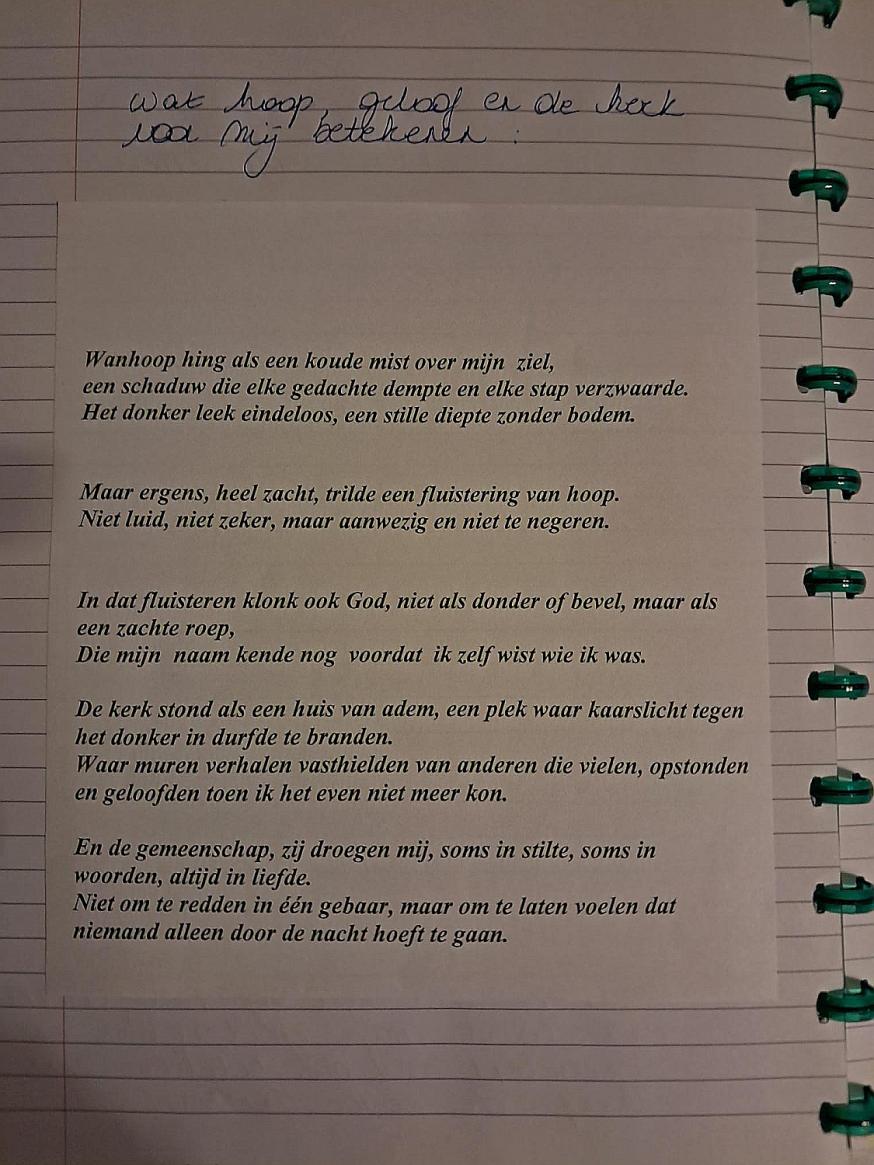 Wat hoop, geloof en de kerk
voor mij betekenen :
Wanhoop hing als een koude mist over mijn  ziel,
een schaduw die elke gedachte dempte en elke stap verzwaarde.
Het donker leek eindeloos, een stille diepte zonder bodem.
Maar ergens, heel zacht, trilde een fluistering van hoop.
Niet luid, niet zeker, maar aanwezig en niet te negeren.
In dat fluisteren klonk ook God, niet als donder of bevel, maar als
een zachte roep,
Die mijn  naam kende nog  voordat  ik zelf wist wie ik was.
De kerk stond als een huis van adem, een plek waar kaarslicht tegen
het donker in durfde te branden.
Waar muren verhalen vasthielden van anderen die vielen, opstonden
en geloofden toen ik het even niet meer kon.
En de gemeenschap, zij droegen mij, soms in stilte, soms in
woorden, altijd in liefde.
Niet om te redden in één gebaar, maar om te laten voelen dat
niemand alleen door de nacht hoeft te gaan.